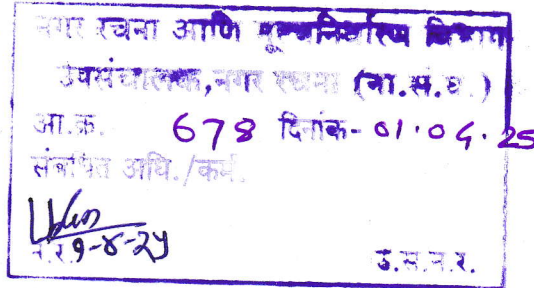 नगर रचना आणि मूल्यनिर्धारण विभाग
उपसंचालक, नगर रचना (ना.सं.घ.)
आ.क्र. 678 दिनांक- 01.04.25
संबंधित अधि./कर्म.
न.र. १-४-२५ उ.स.न.र.